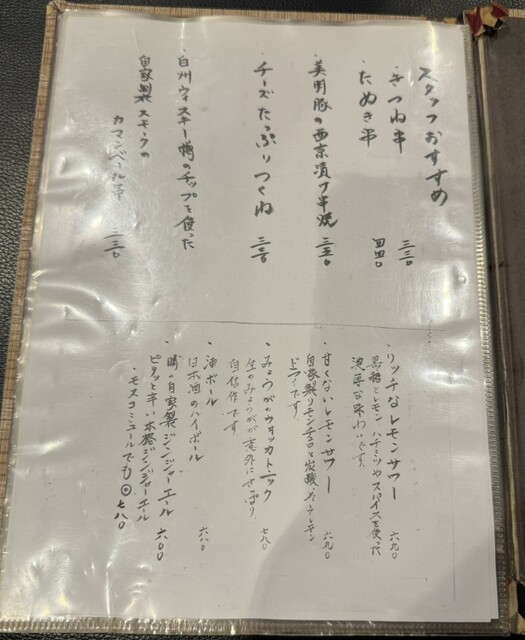 スタッフおすすめ
・きつね串 三三〇
・たぬき串 四四〇
・美明豚の西京漬け串焼 三五〇
・チーズたっぷりつくね 三三〇
・白州ウィスキー樽のチップを使った
自家製スモークの
カマンベール串 三三〇
・リッチなレモンサワー 六九〇
黒糖とレモン、ハチミツやスパイスを使った
濃厚な味わいです。
・甘くないレモンサワー 六九〇
自家製リモンチェロと炭酸、
ドライです。
・みょうがのウオッカトニック 七八〇
生のみょうがが意外にさっぱり
自信作です
・酒ボール
日本酒のハイボール 六八〇
自家製ジンジャーエール
ピリッと辛い本格ジンジャーエール 六〇〇
・モスコミュールでも◎ 七八〇